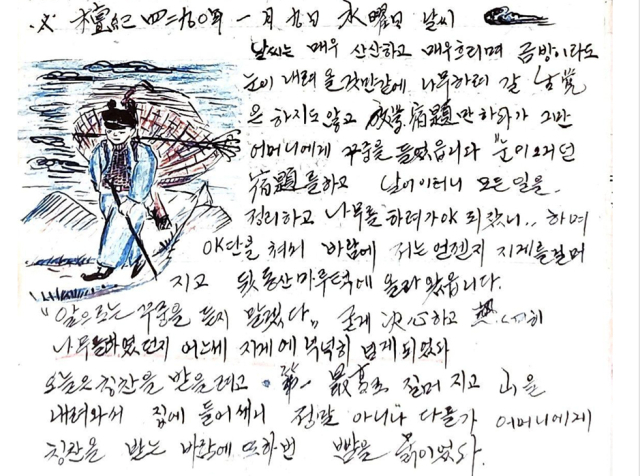 檀紀 四二九○年 一月 九日 水曜日 날씨
날씨는 매우 산산하고 매우흐리며 금방이라도
눈이 내려 올것만같에 나무하러 갈
은 하지도않고 放學宿題만 하다가 그만
어머니에게 꾸중을 들었읍니다 "눈이오거던
宿題를하고 날이이러니 모든 일을
정리하고 나무를 하러가야 되잖니.. 하며
야단을 쳐서 바람에 저는 언젠지 지게를걸머
지고 뒷동산마루턱에 올라 왔읍니다.
"앞으로는 꾸중을 듣지 말겠다" 굳게 決心하고 熱心히
나무를하였던지 어느세 지게에 넉넉히 넘게되었다
오늘은칭찬을 받을려고 第一 最高로 질머 지고 山을
내려와서 집에 들어서니 정말 아니나 다를가 어머니에게
칭찬을 받는 바람에 또한번 빰을 붉이었다.